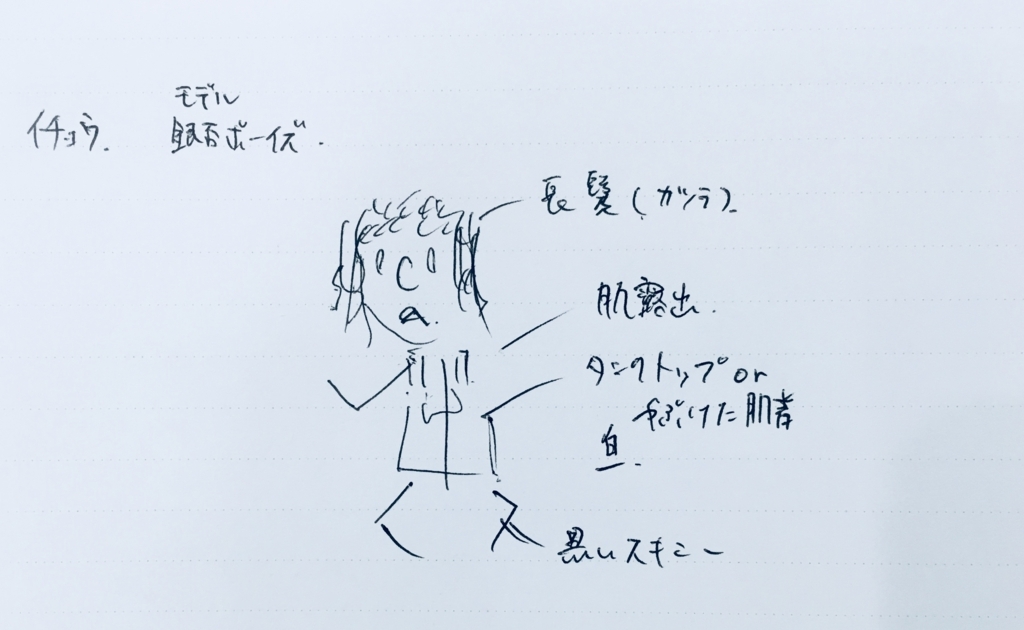 モデル
イチョウ. 銀杏ボーイズ.
長髪(カツラ).
肌露出.
タンクトップor
けた肌着
白.
黒いスキニー